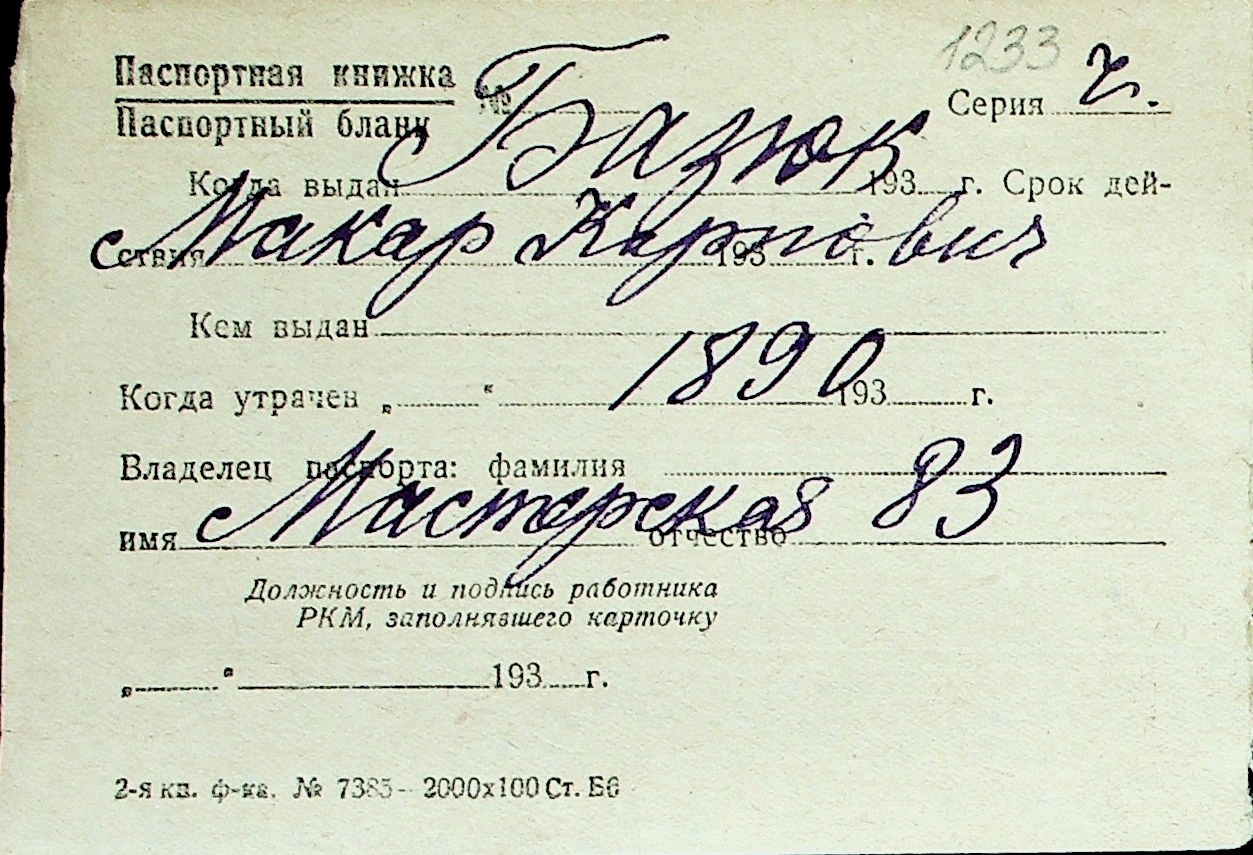 1233
Паспортная книжка
Паспортный бланк № Серия ч.
Базюк
Когда выдан 193 г. Срок дей-
ствия 193 г.
Макар Карпович
Кем выдан
1890
Когда утрачен „ “ 193 г.
Владелец паспорта: фамилия
Мастерская 83
имя отчество
Должность и подпись работника
РКМ, заполнявшего карточку
„ “ 193 г.
2-я кв. ф-ка. № 7385— 2000х100 Ст. Б6